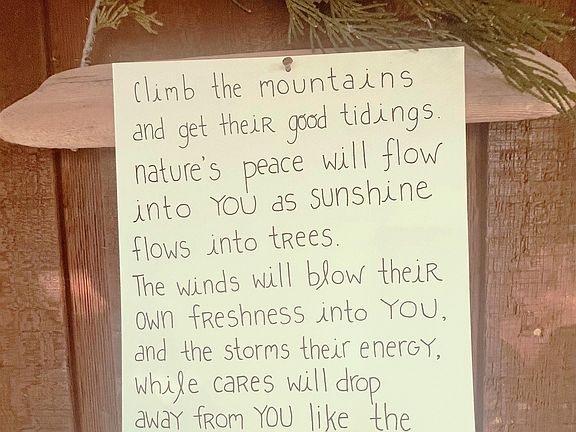 climb the mountains
and get theiR good tidings.
nature's peace will flow
into YOU as sunshine
flows into tRees.
The winds will blow theiR
own fReshness into YOU,
and the storms their eneRGY,
while caRes will drop
away from YOU like the